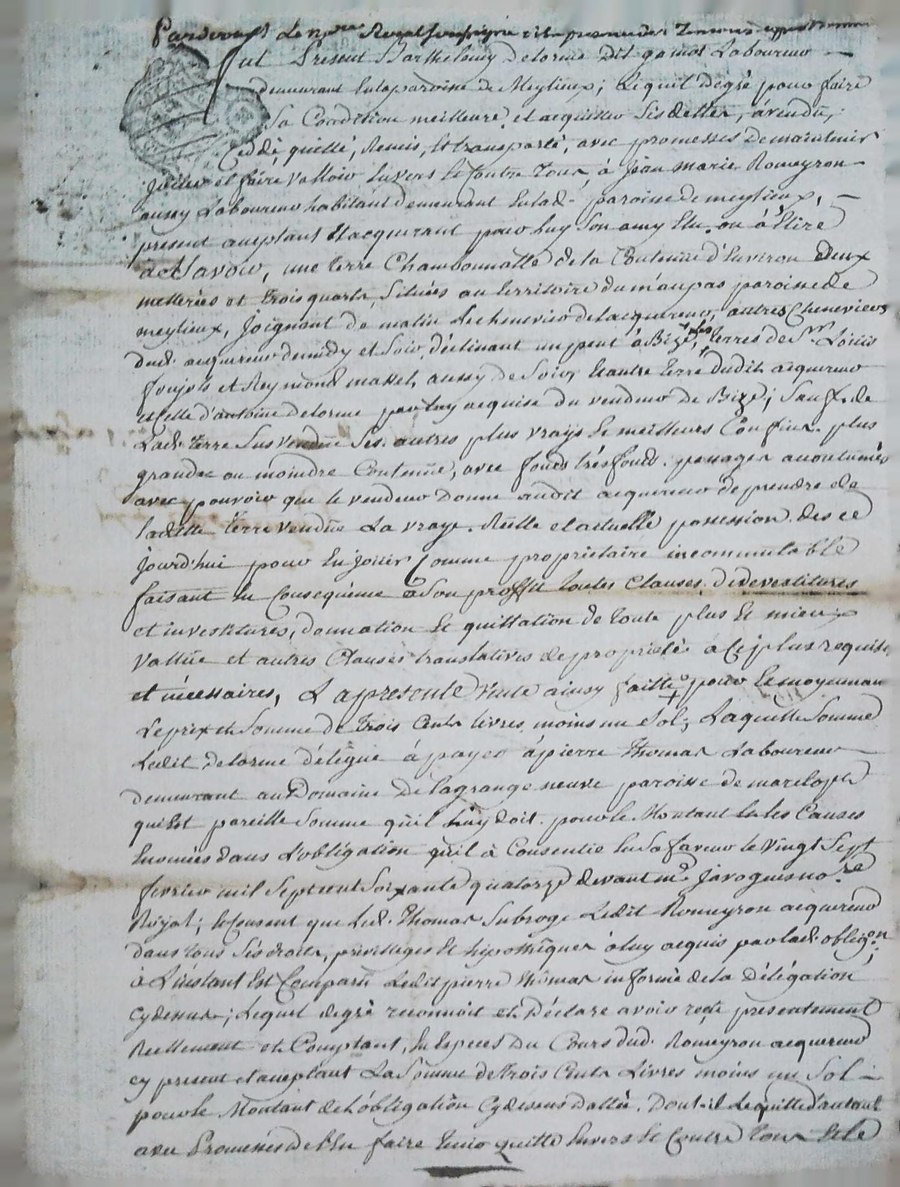 Pardevant Le nore Royal soussigné et en presence des Temoins apres nommés
fut Present Barthelemy delorme dit gamot Laboureur
demeurant en la paroisse de Meylieux; Lequel de gré pour faire
Sa Condition meilleure et acquitter ses dettes, à vendu,
Ceddé, quitté, Remis, et transporté, avec promesses de maintenir
jouir et faire valloir envers et Contre Tous à Jean marie Romeyron
aussy Laboureur habitant demeurant en lad. paroisse de meylieux,
present acceptant et acquerant pour luy Son amy Elu ou à Elire
a Sçavoir, une terre Chambonnalle de la Contenüe d'Environ deux
metterées et trois quarts, Situées au territoire du maupas paroisse de
meylieux, joignant de matin Les cheneviers de lacquereur, autres Cheneviers
dud. acquereur de midy et Soir, déclinant un peu à Bize, les terres de Sr. Louis
foujols et Reymond massel, aussy de Soir, Et autre terre dudit acquereur
et Celle d'antoine delorme par luy acquise du vendeur de Bize; Sauf de
Ladt. terre Sus vendüe Ses autres plus vrays et meilleurs Confins, plus
grande ou moindre Contenüe, avec fonds trésfonds passages accoutumés
avec pouvoir que le vendeur donne audit acquereur de prendre de
ladite terre vendüe La vraye, Réelle et actuelle possession des ce
jourd'hui pour en jouir Comme propriétaire incommutable
faisant en Consequence à Son proffit toutes Clauses de devestitures
et investitures, donnation et quittation de toute plus et mieux
vallüe et autres Clauses translatives de proprieté à Ce plus requises
et nécessaires, La presente vente ainsy faitte pour et moyennant
Le prix et Somme de Trois Cents livres moins un Sol; Laquelle Somme
Ledit delorme délègue à payer à pierre Thomas Laboureur
demeurant au Domaine de la grange neuve paroisse de marclopt
qui Est pareille Somme qu'il Luy doit pour le Montant et les Causes
Enoncées dans L'obligation qu'il à Consentie en Sa faveur le vingt Sept
fevrier mil Sept cent Soixante quatorze devant me. javogues nore
Royal; et Consent que Led. Thomas Subroge Ledit Romeyron acquereur
dans tous Ses droits, privilleges et hypothèques à luy acquis par lad. obligon.
à L'instant Est Comparu Ledit pierre Thomas informé de la Délégation
cy dessus; Lequel de gré reconnoit et Déclare avoir reçu presentement
Reellement et Comptant, en Especes du Cours dud. Romeyron acquereur
cy present et acceptant La Somme de Trois Cents Livres moins un Sol
pour le Montant de L'obligation Cy dessus dattée, Dont il Le quitte d'autant
avec Promesses de L'en faire Tenir quitte Envers et Contre Tous Et le